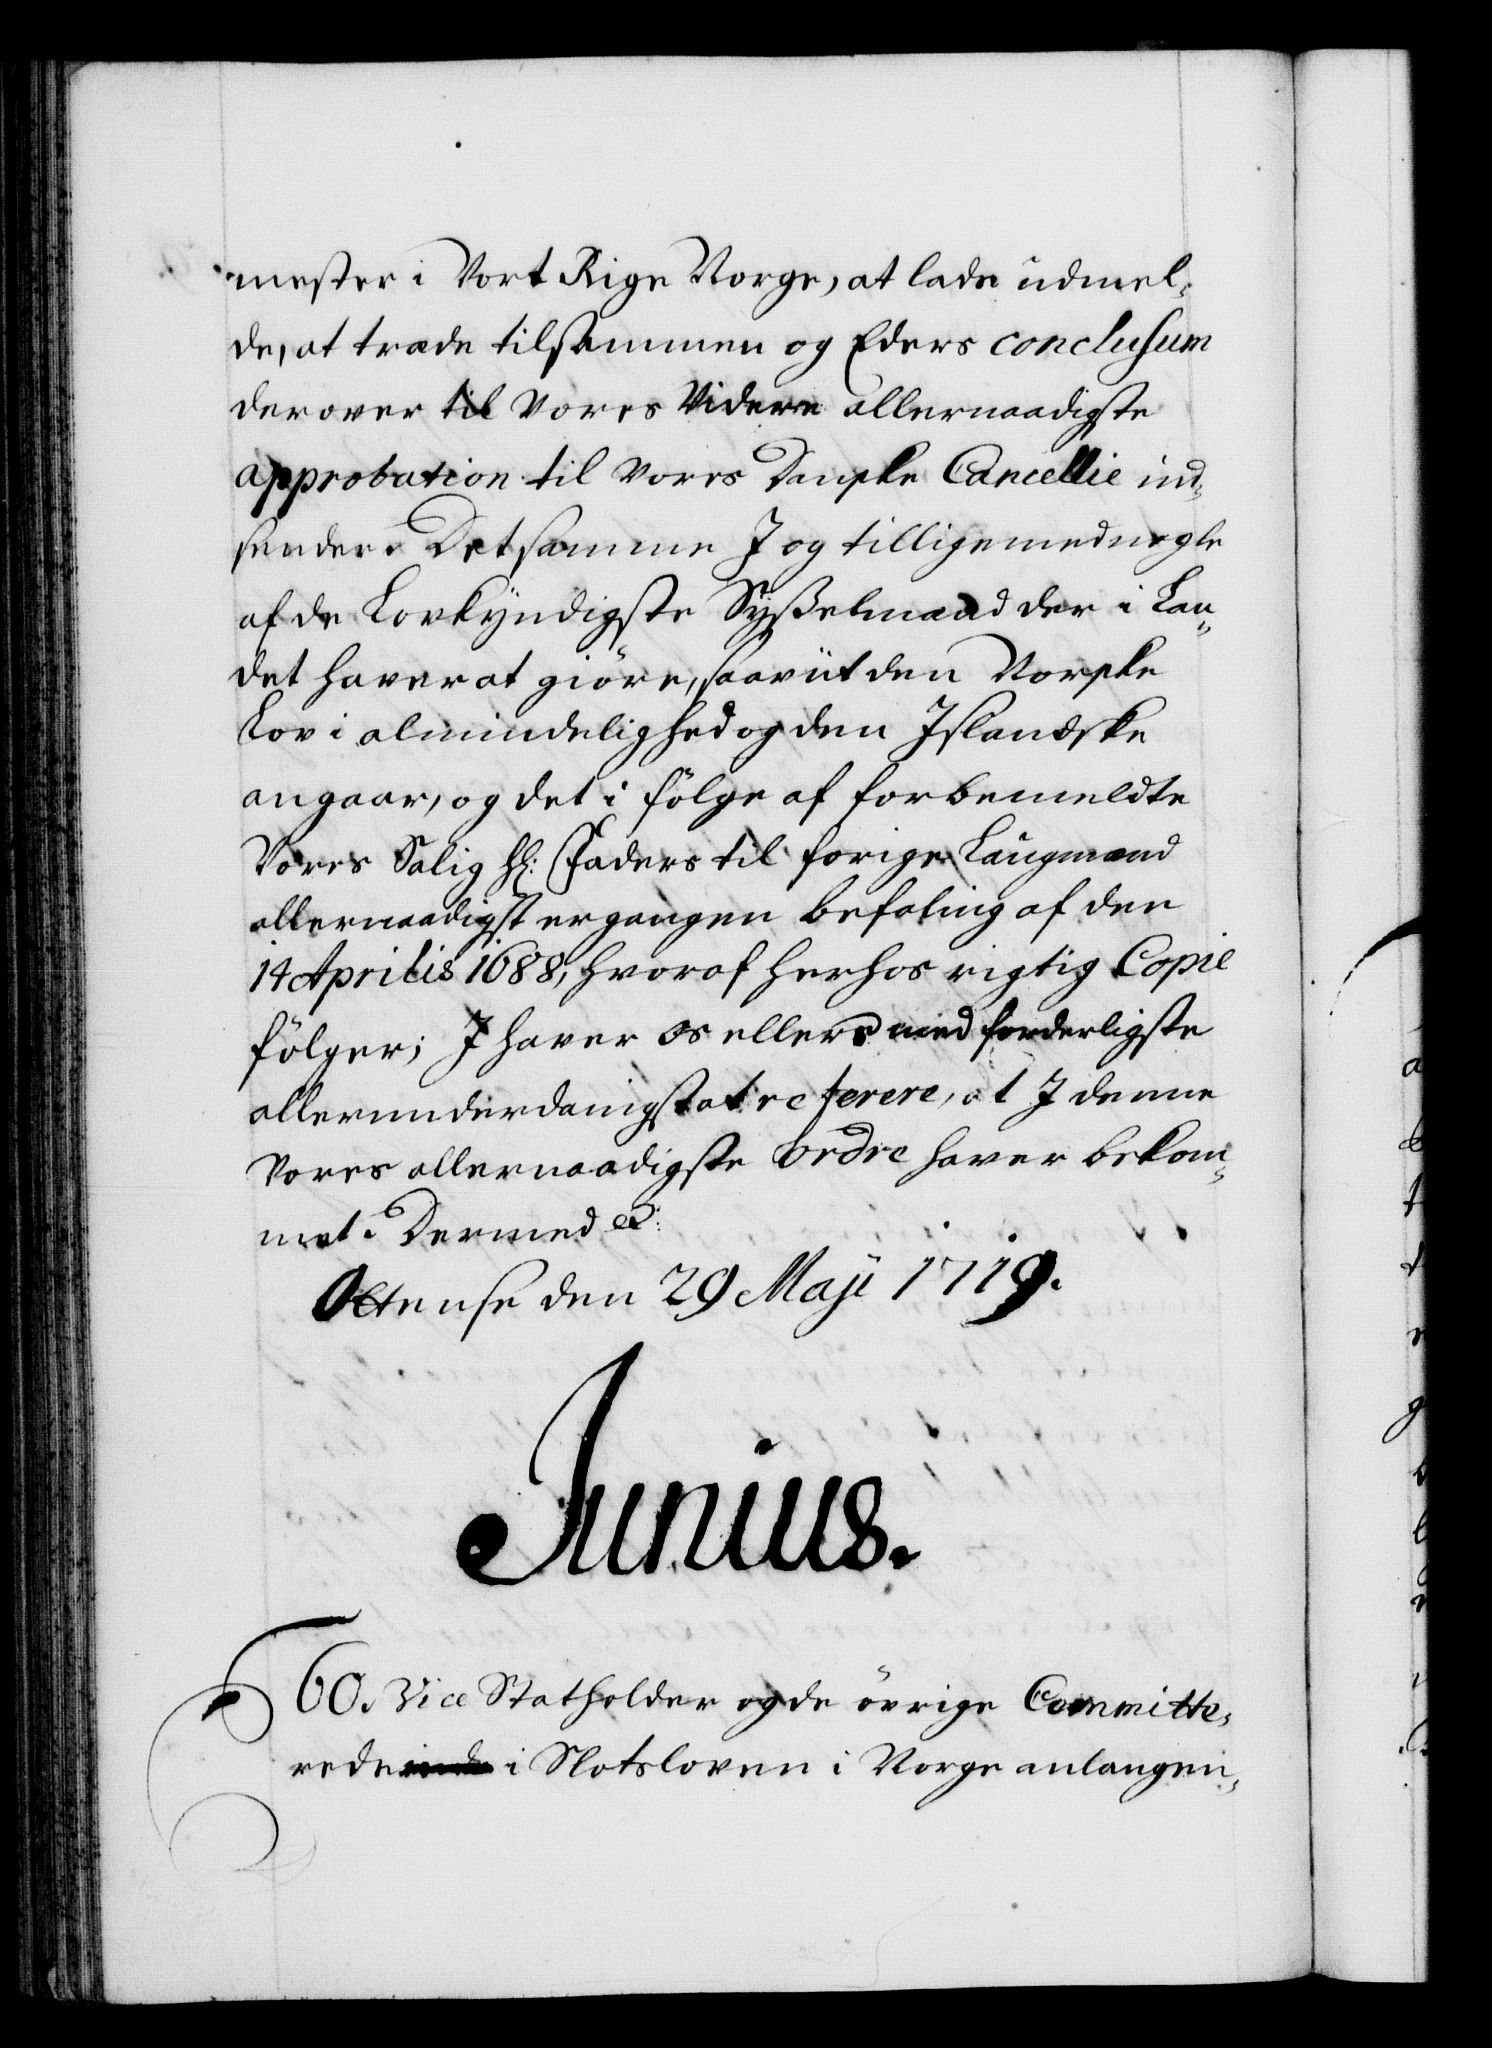 mester i Vort Rige Norge, at lade udmel¬
de, at træde tilsammen og Eders conclusum
derover til Vores Videre allernaadigste
approbation til Vores Danske Cancellie ind¬
sender. Det samme I og tilligemed nogle
af de Lovkyndigste Sysselmænd der i Lan¬
det haver at giöre, saavit den Norske
Lov i almindelighed og den Islandske
angaar, og det i fölge af forbemeldte
Vores Salig H: Faders til forige Laugmænd
allernaadigst ergangen befaling af den
14 Aprilis 1688, hvoraf herhos rigtig Copie
fölger; I haver os ellers med forderligste
allerunderdanigst at referere, at I denne
Vores allernaadigste ordre haver bekom¬
met. Dermed &:
Ottense den 29 Maji 1719.
Junius.
60. Vice Statholder og de övrige Committe¬
rede i Slotsloven i Norge anlangen¬